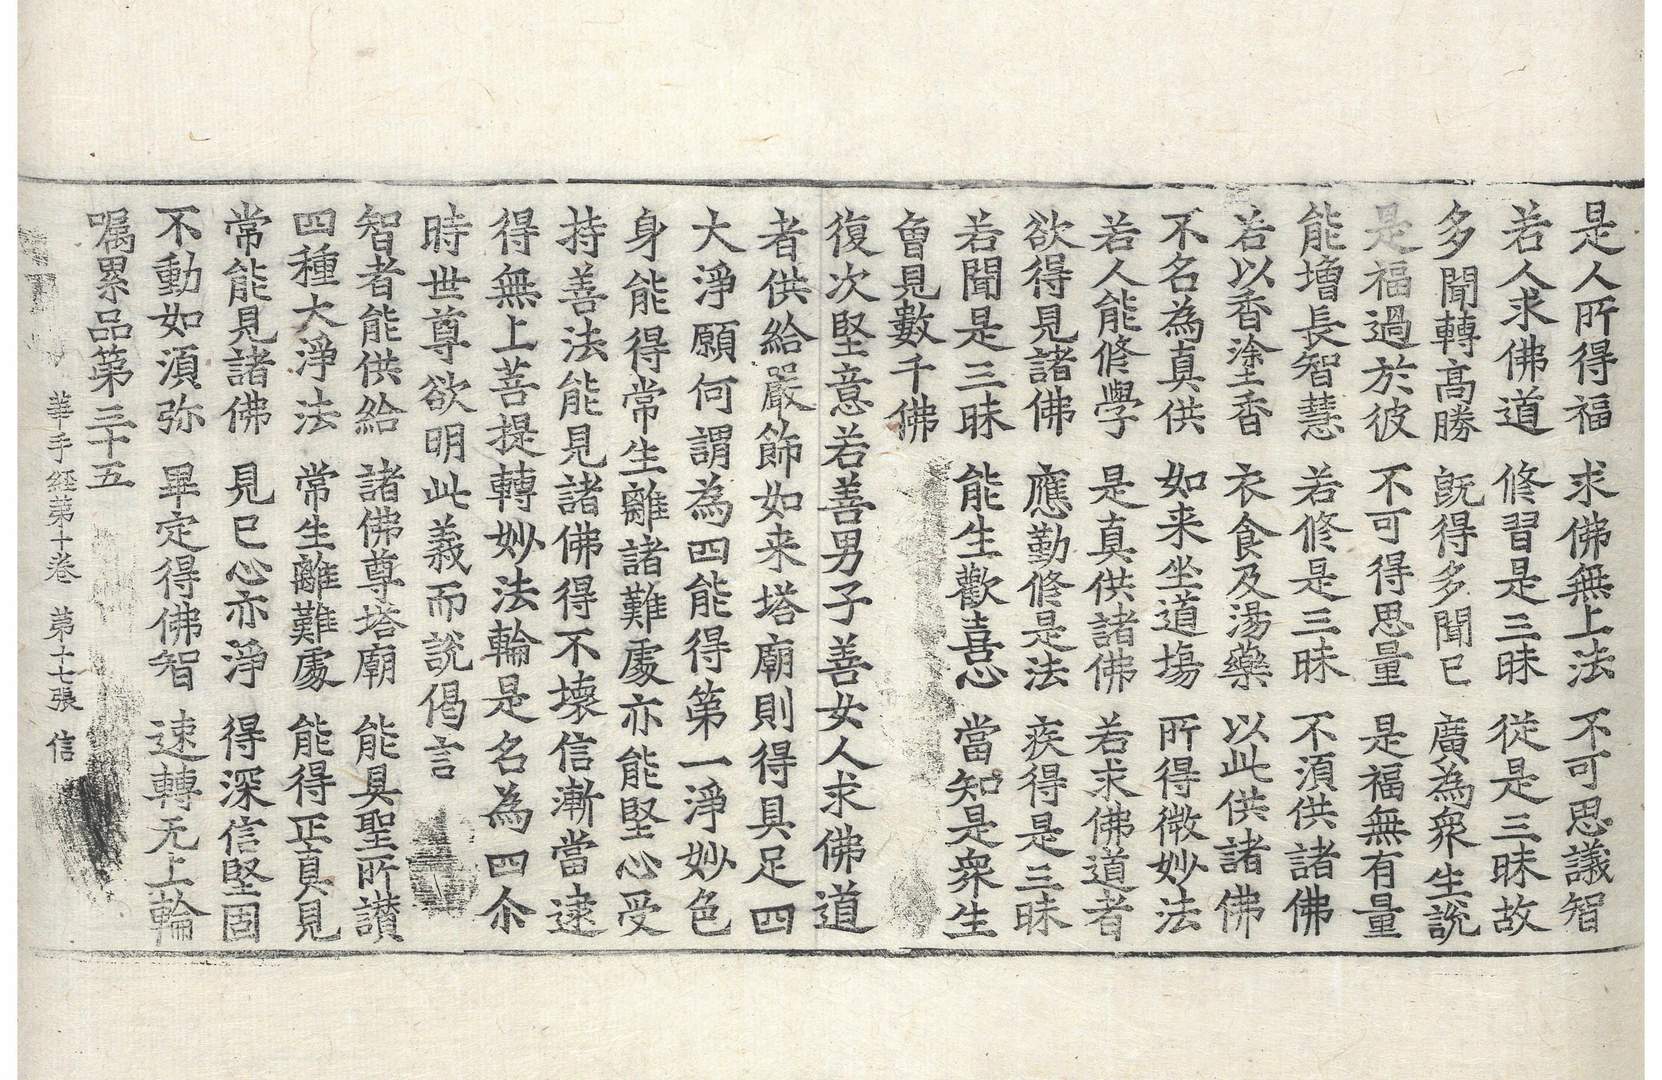 是人所得福　求佛無上法　不可思議智
若人求佛道　修習是三昧　從是三昧故
多聞轉高勝　旣得多聞已　廣為衆生說
是福過於彼　不可得思量　是福無有量
能增長智慧　若修是三昧　不湏供諸佛
若以香塗香　衣食及湯藥　以此供諸佛
不名為真供　如来坐道場　所得微妙法
若人能修學　是真供諸佛　若求佛道者
欲得見諸佛　應勤修是法　疾得是三昧
若聞是三昧　能生歡喜心　當知是衆生
曾見數千佛
復次堅意若善男子善女人求佛道
者供給嚴飾如来塔廟則得具足四
大淨願何謂為四能得第一淨妙色
身能得常生離諸難處亦能堅心受
持善法能見諸佛得不壞信漸當逮
得無上菩提轉妙法輪是名為四尒
時世尊欲明此義而說偈言
智者能供給　諸佛尊塔廟　能具聖所讃
四種大淨法　常生離難處　能得正真見
常能見諸佛　見已心亦淨　得深信堅固
不動如湏弥　畢定得佛智　速轉无上輪
嘱累品第三十五
華手経第十卷　第十七張　信